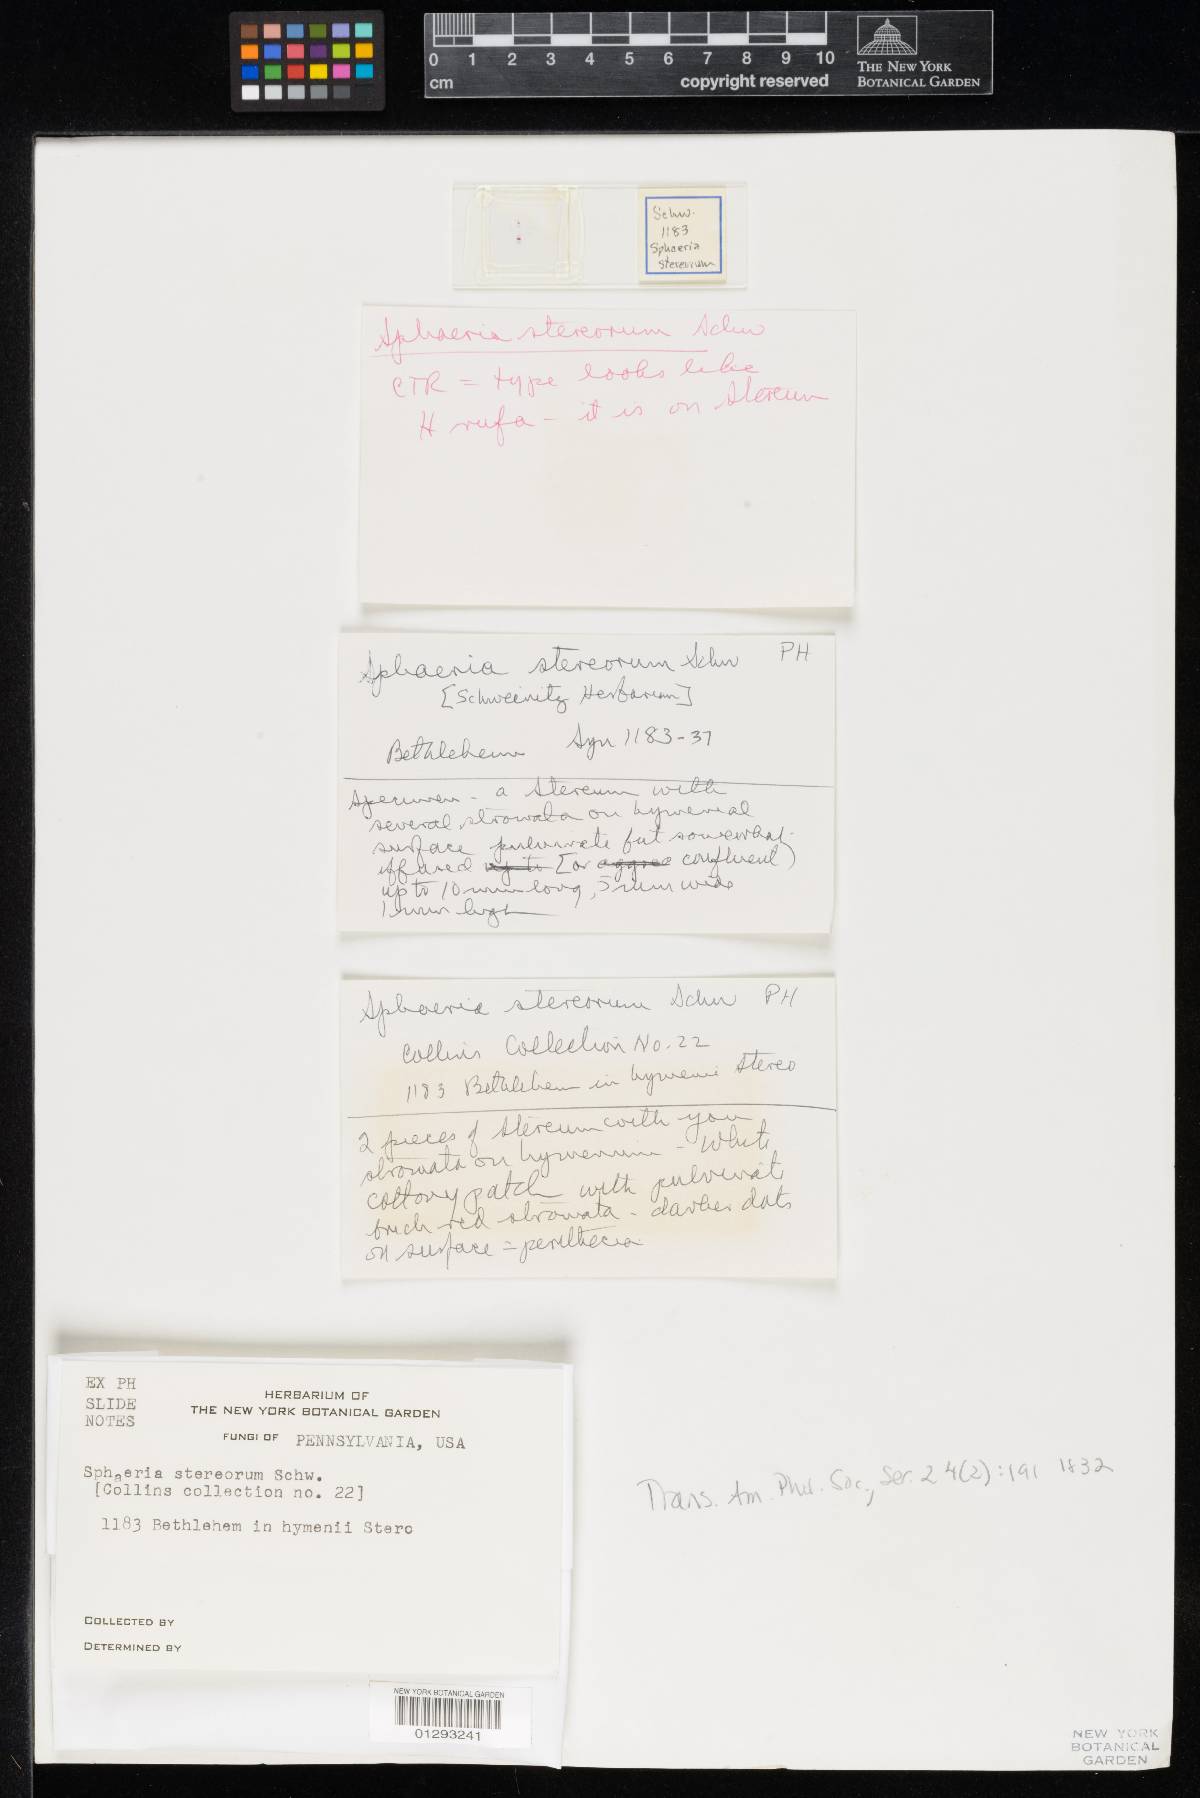 0 1 2 3 4 5 6 7 8 9 10
cm
copyright reserved
THE NEW YORK
BOTANICAL GARDEN
Schw.
1183
Sphaeria
stereorum
Sphaeria stereorum Schw
CTR = type looks like
H rufa - it is on Stereum
Sphaeria stereorum Schw PH
[Schweinitz Herbarium]
Bethlehem Syn 1183-37
Specimen - a Stereum with
several stromata on hymenial
surface pulvinate but somewhat
effused up to [or aggre confluent)
up to 10 mm long, 5 mm wide
1 mm high
Sphaeria stereorum Schw PH
Collins Collection No. 22
1183 Bethlehem in hymenii Stereo
2 pieces of Stereum with
stromata on hymenium - White
cottony patch with pulvinate
brick-red stromata - darker dots
on surface = perithecia
EX PH
SLIDE
NOTES
HERBARIUM OF
THE NEW YORK BOTANICAL GARDEN
FUNGI OF PENNSYLVANIA, USA
Sphaeria stereorum Schw.
[Collins collection no. 22]
1183 Bethlehem in hymenii Sterc
COLLECTED BY
DETERMINED BY
NEW YORK BOTANICAL GARDEN
01293241
Trans. Am. Phil. Soc., Ser. 2 4(2):191 1832
NEW YORK
BOTANICAL
GARDEN